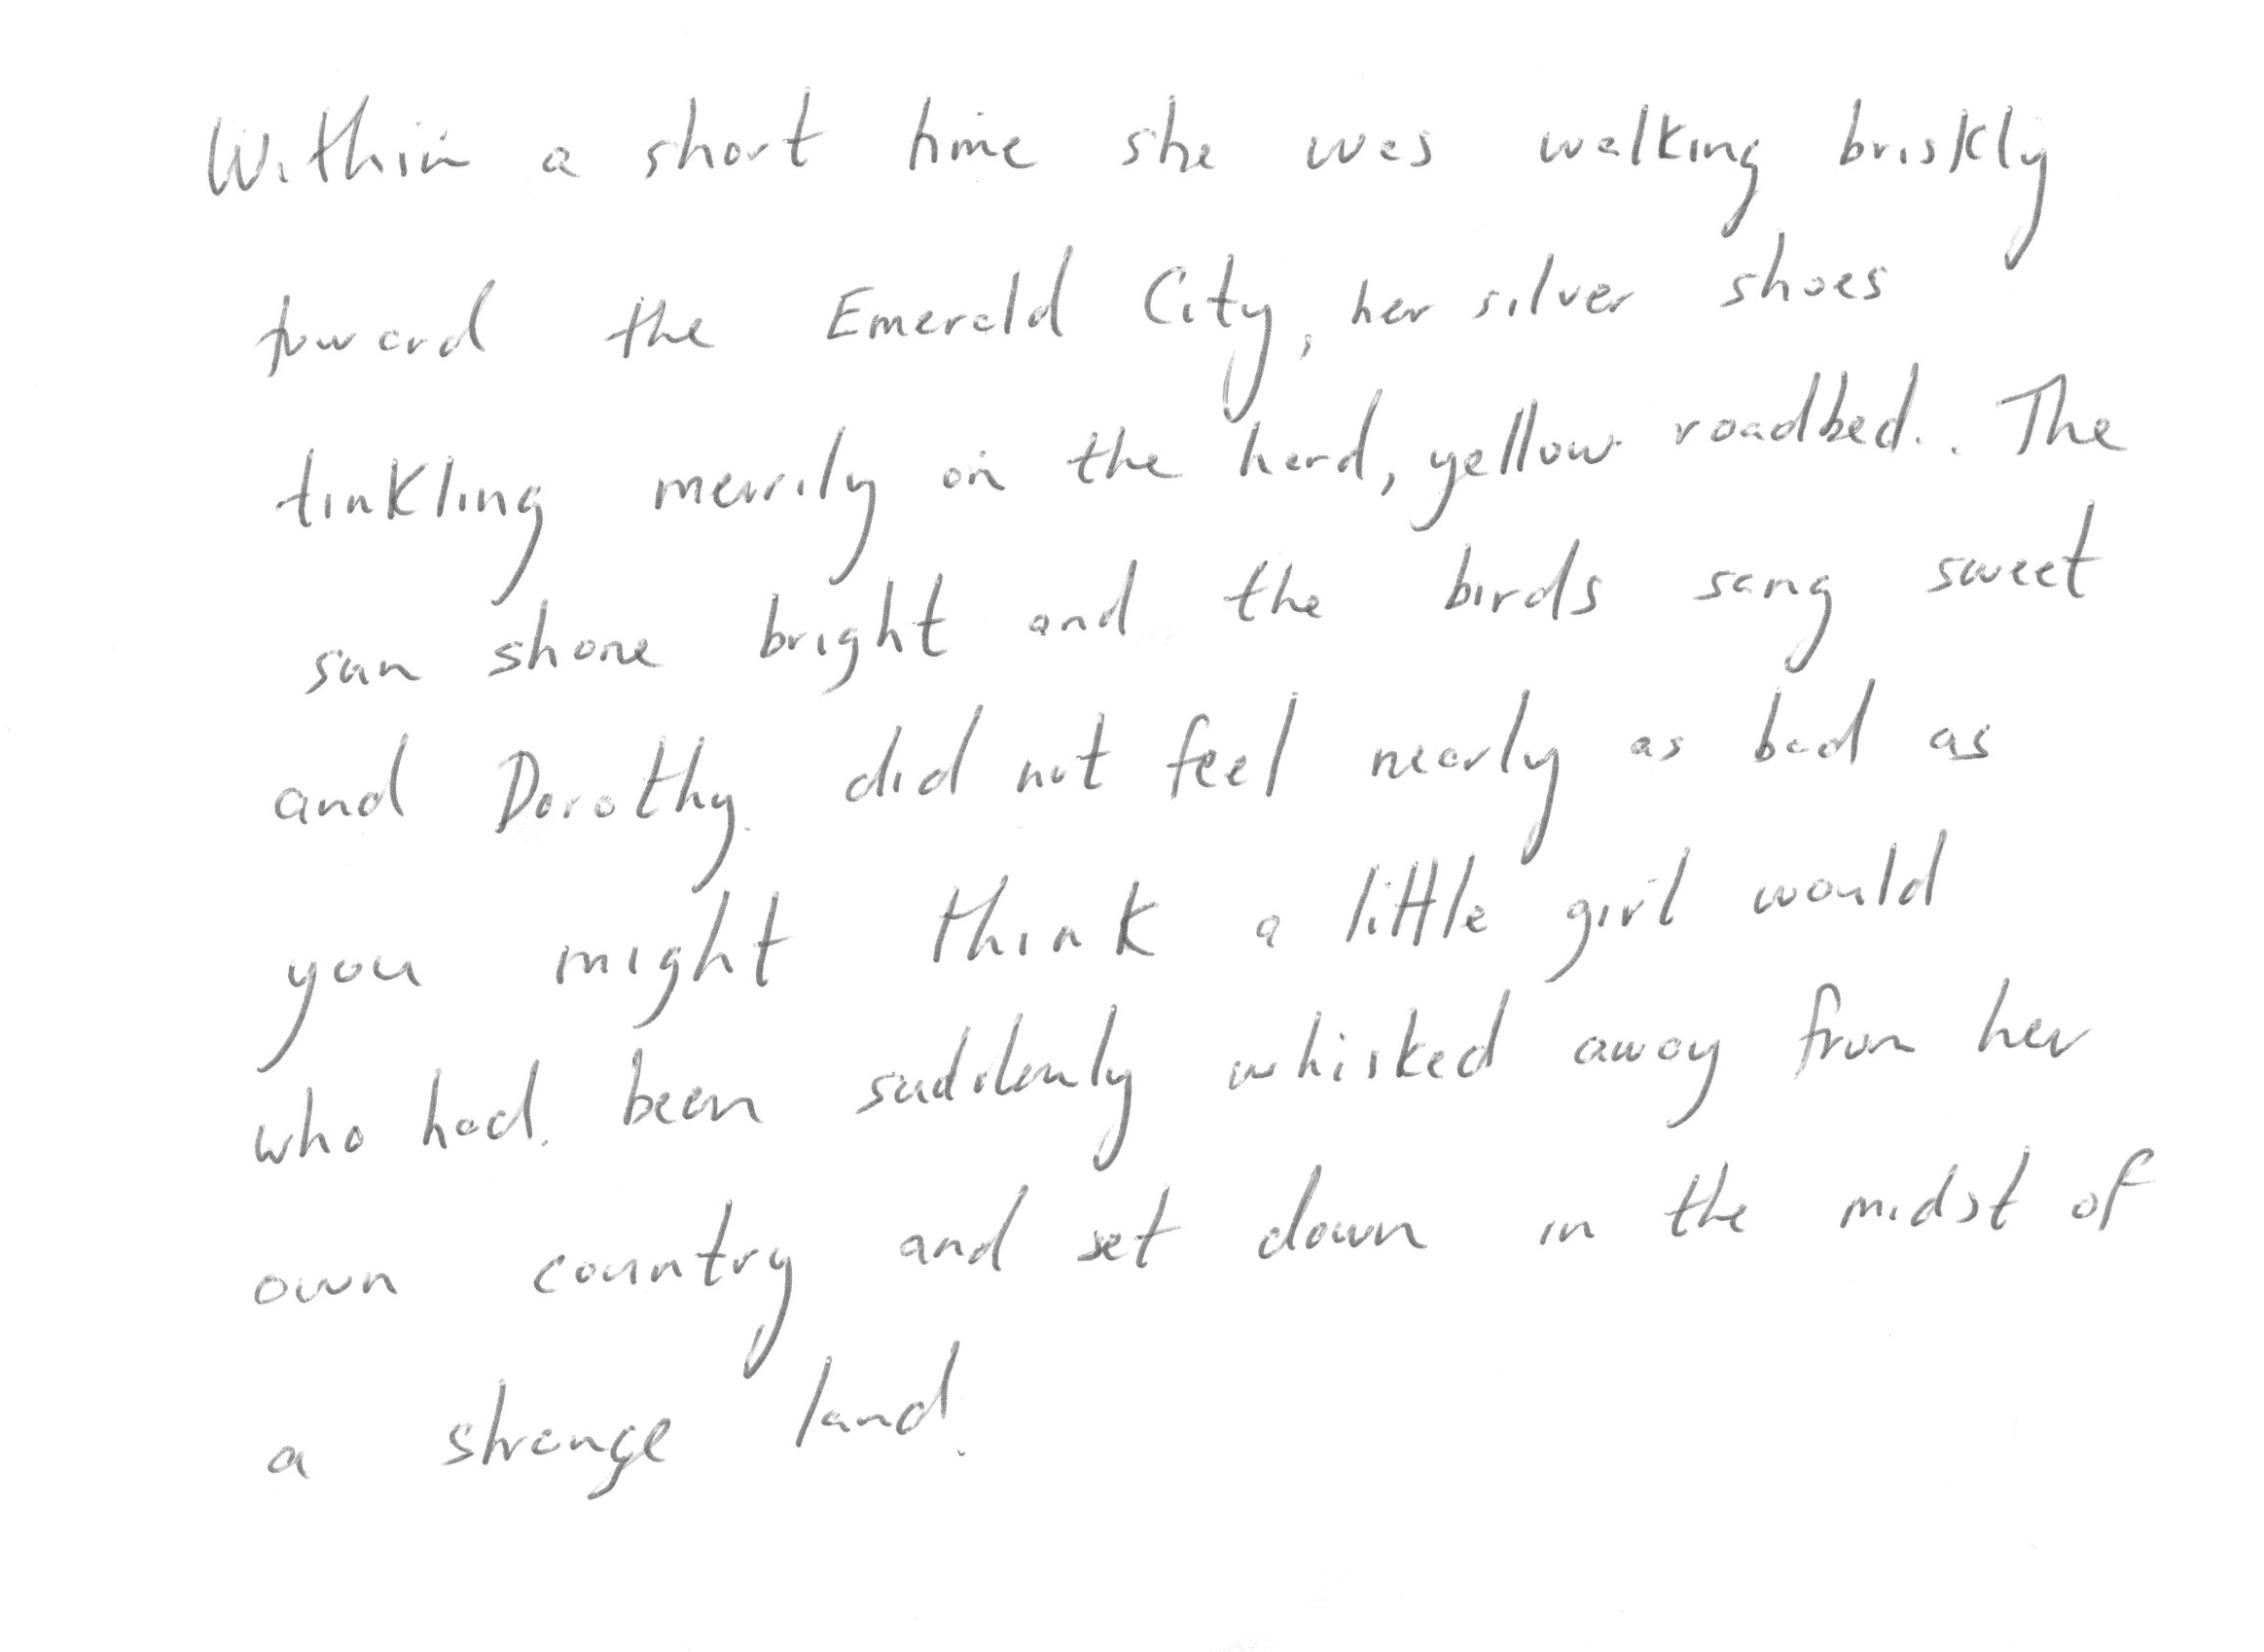 Within a short time she was walking briskly
toward the Emerald City, her silver shoes
tinkling merrily on the hard, yellow roadbed. The
sun shone bright and the birds sang sweet
and Dorothy did not feel nearly as bad as
you might think a little girl would
who had been suddenly whisked away from her
own country and set down in the midst of
a strange land.